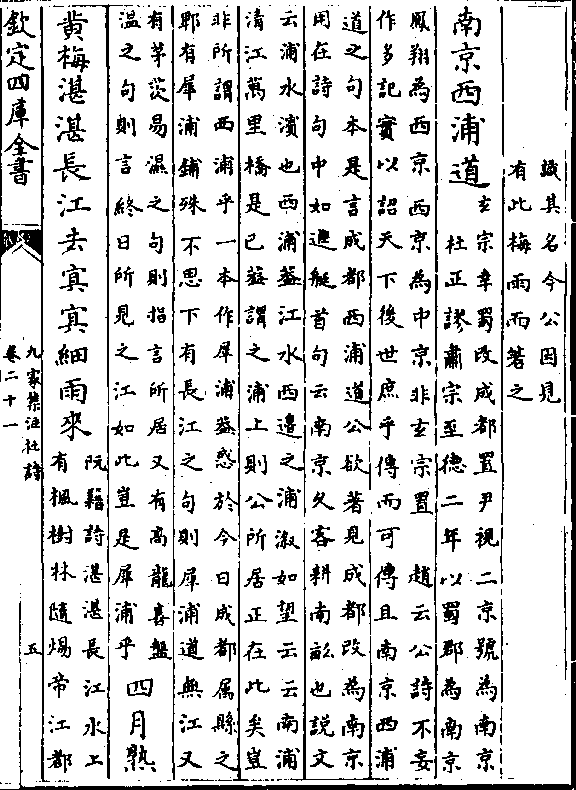 識其名今公因見
有此梅雨而著之
南京西浦道
玄宗幸蜀改成都置尹視二京號為南京
杜正謬肅宗至德二年以蜀郡為南京
鳳翔為西京西京為中京非玄宗置
趙云公詩不妄
作多記實以詔天下後世庶乎傳而可傳且南京西浦
道之句本是言成都西浦道公欲著見成都改為南京
用在詩句中如進艇首句云南京久客耕南畝也說文
云浦水濱也西浦蓋江水西邊之浦溆如望云云南浦
清江萬里橋是已蓋謂之浦上則公所居正在此矣豈
非所謂西浦乎一本作犀浦蓋惑於今日成都屬縣之
郫有犀浦鋪殊不思下有長江之句則犀浦道無江又
有茅茨易濕之句則指言所居又有高龍喜盤
溫之句則言終日所見之江如此豈是犀浦乎
四月熟
黄梅湛湛長江去㝠㝠細雨來
阮籍詩湛湛長江水上
有楓樹林隨煬帝江都
欽定四庫全書
九家集注杜詩
卷二十一
五